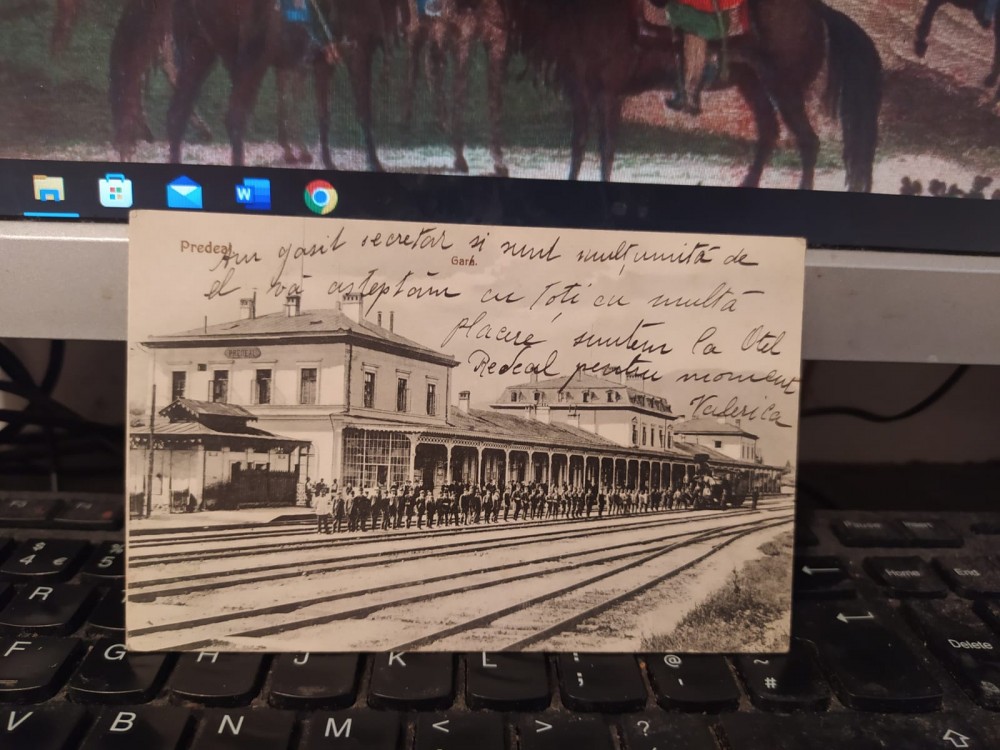 W
Predeal
Gară.
Am gasit secretar si sunt mulțumită de
el vă asteptăm cu Toți cu multă
placere, suntem la Otel
Predeal pentru moment
Valerica
PREDEAL
Pause
$ 4 €
% 5
Home
End
R
Delete
F G H J K L : ; @ ' ~ #
V B N M < > ?